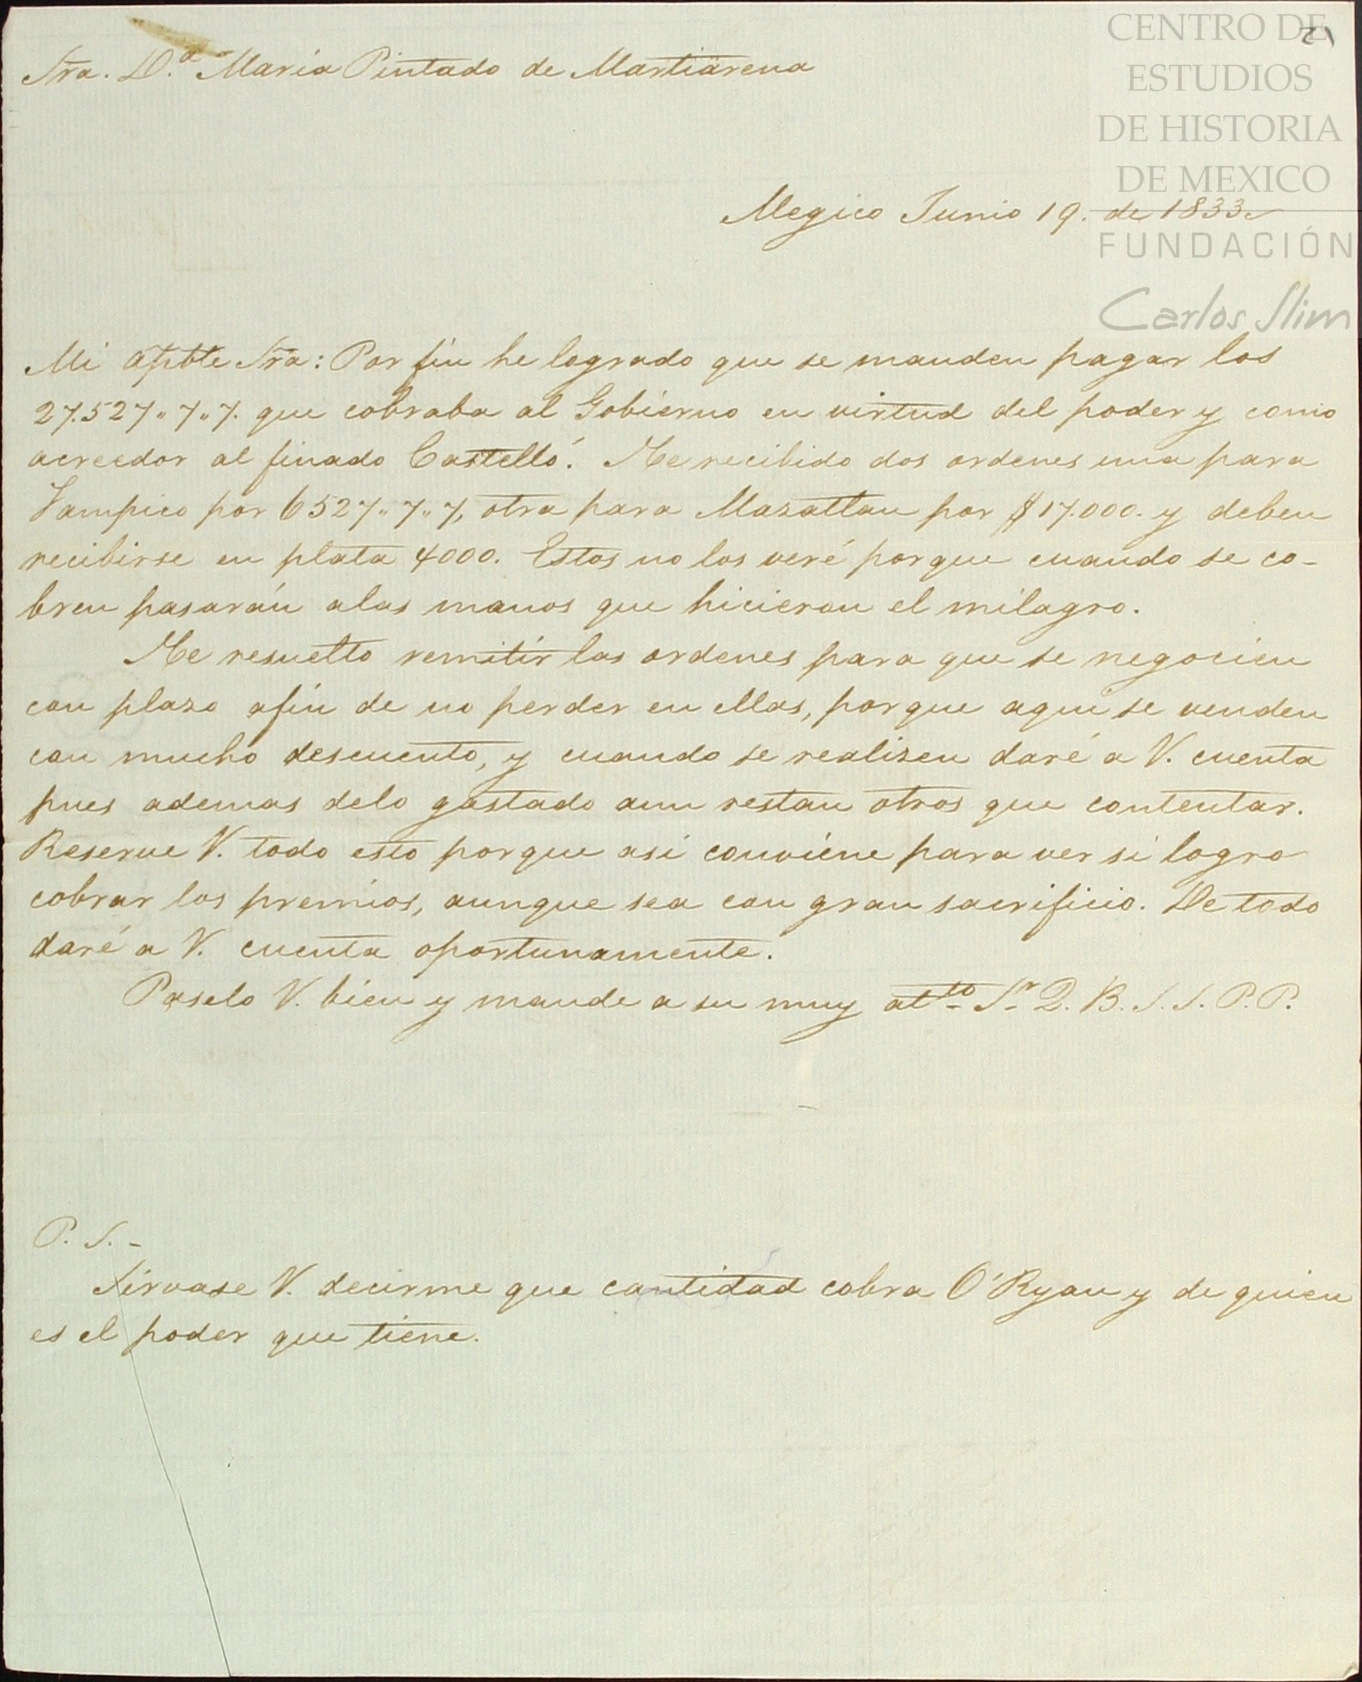 CENTRO DE
ESTUDIOS
DE HISTORIA
DE MEXICO
FUNDACIÓN
Carlos Slim
21
Sra. D.ª Maria Pintado de Martiarena
Megico Junio 19. de 1833.
Mi apble Sra: Por fin he logrado que se manden pagar los
27.527,,7,,7. que cobraba al Gobierno en virtud del poder y como
acreedor al finado Castelló. He recibido dos ordenes una para
Tampico por 6527,,7,,7, otra para Mazatlan por $17.000. y deben
recibirse en plata 4000. Estos no los veré porque cuando se co-
bren pasarán alas manos que hicieron el milagro.
He resuelto remitir las ordenes para que se negocien
con plazo afin de no perder en ellas, porque aqui se venden
con mucho descuento, y cuando se realizen daré a V. cuenta
pues ademas delo gastado aun restan otros que contentar.
Reserve V. todo esto porque asi conviene para ver si logro
cobrar los premios, aunque sea con gran sacrificio. De todo
daré a V. cuenta oportunamente.
Paselo V. bien y mande a su muy atto Sr Q. B. S. S. P. P.
P. S. -
Sirvase V. decirme que cantidad cobra O'Ryan y de quien
es el poder que tiene.